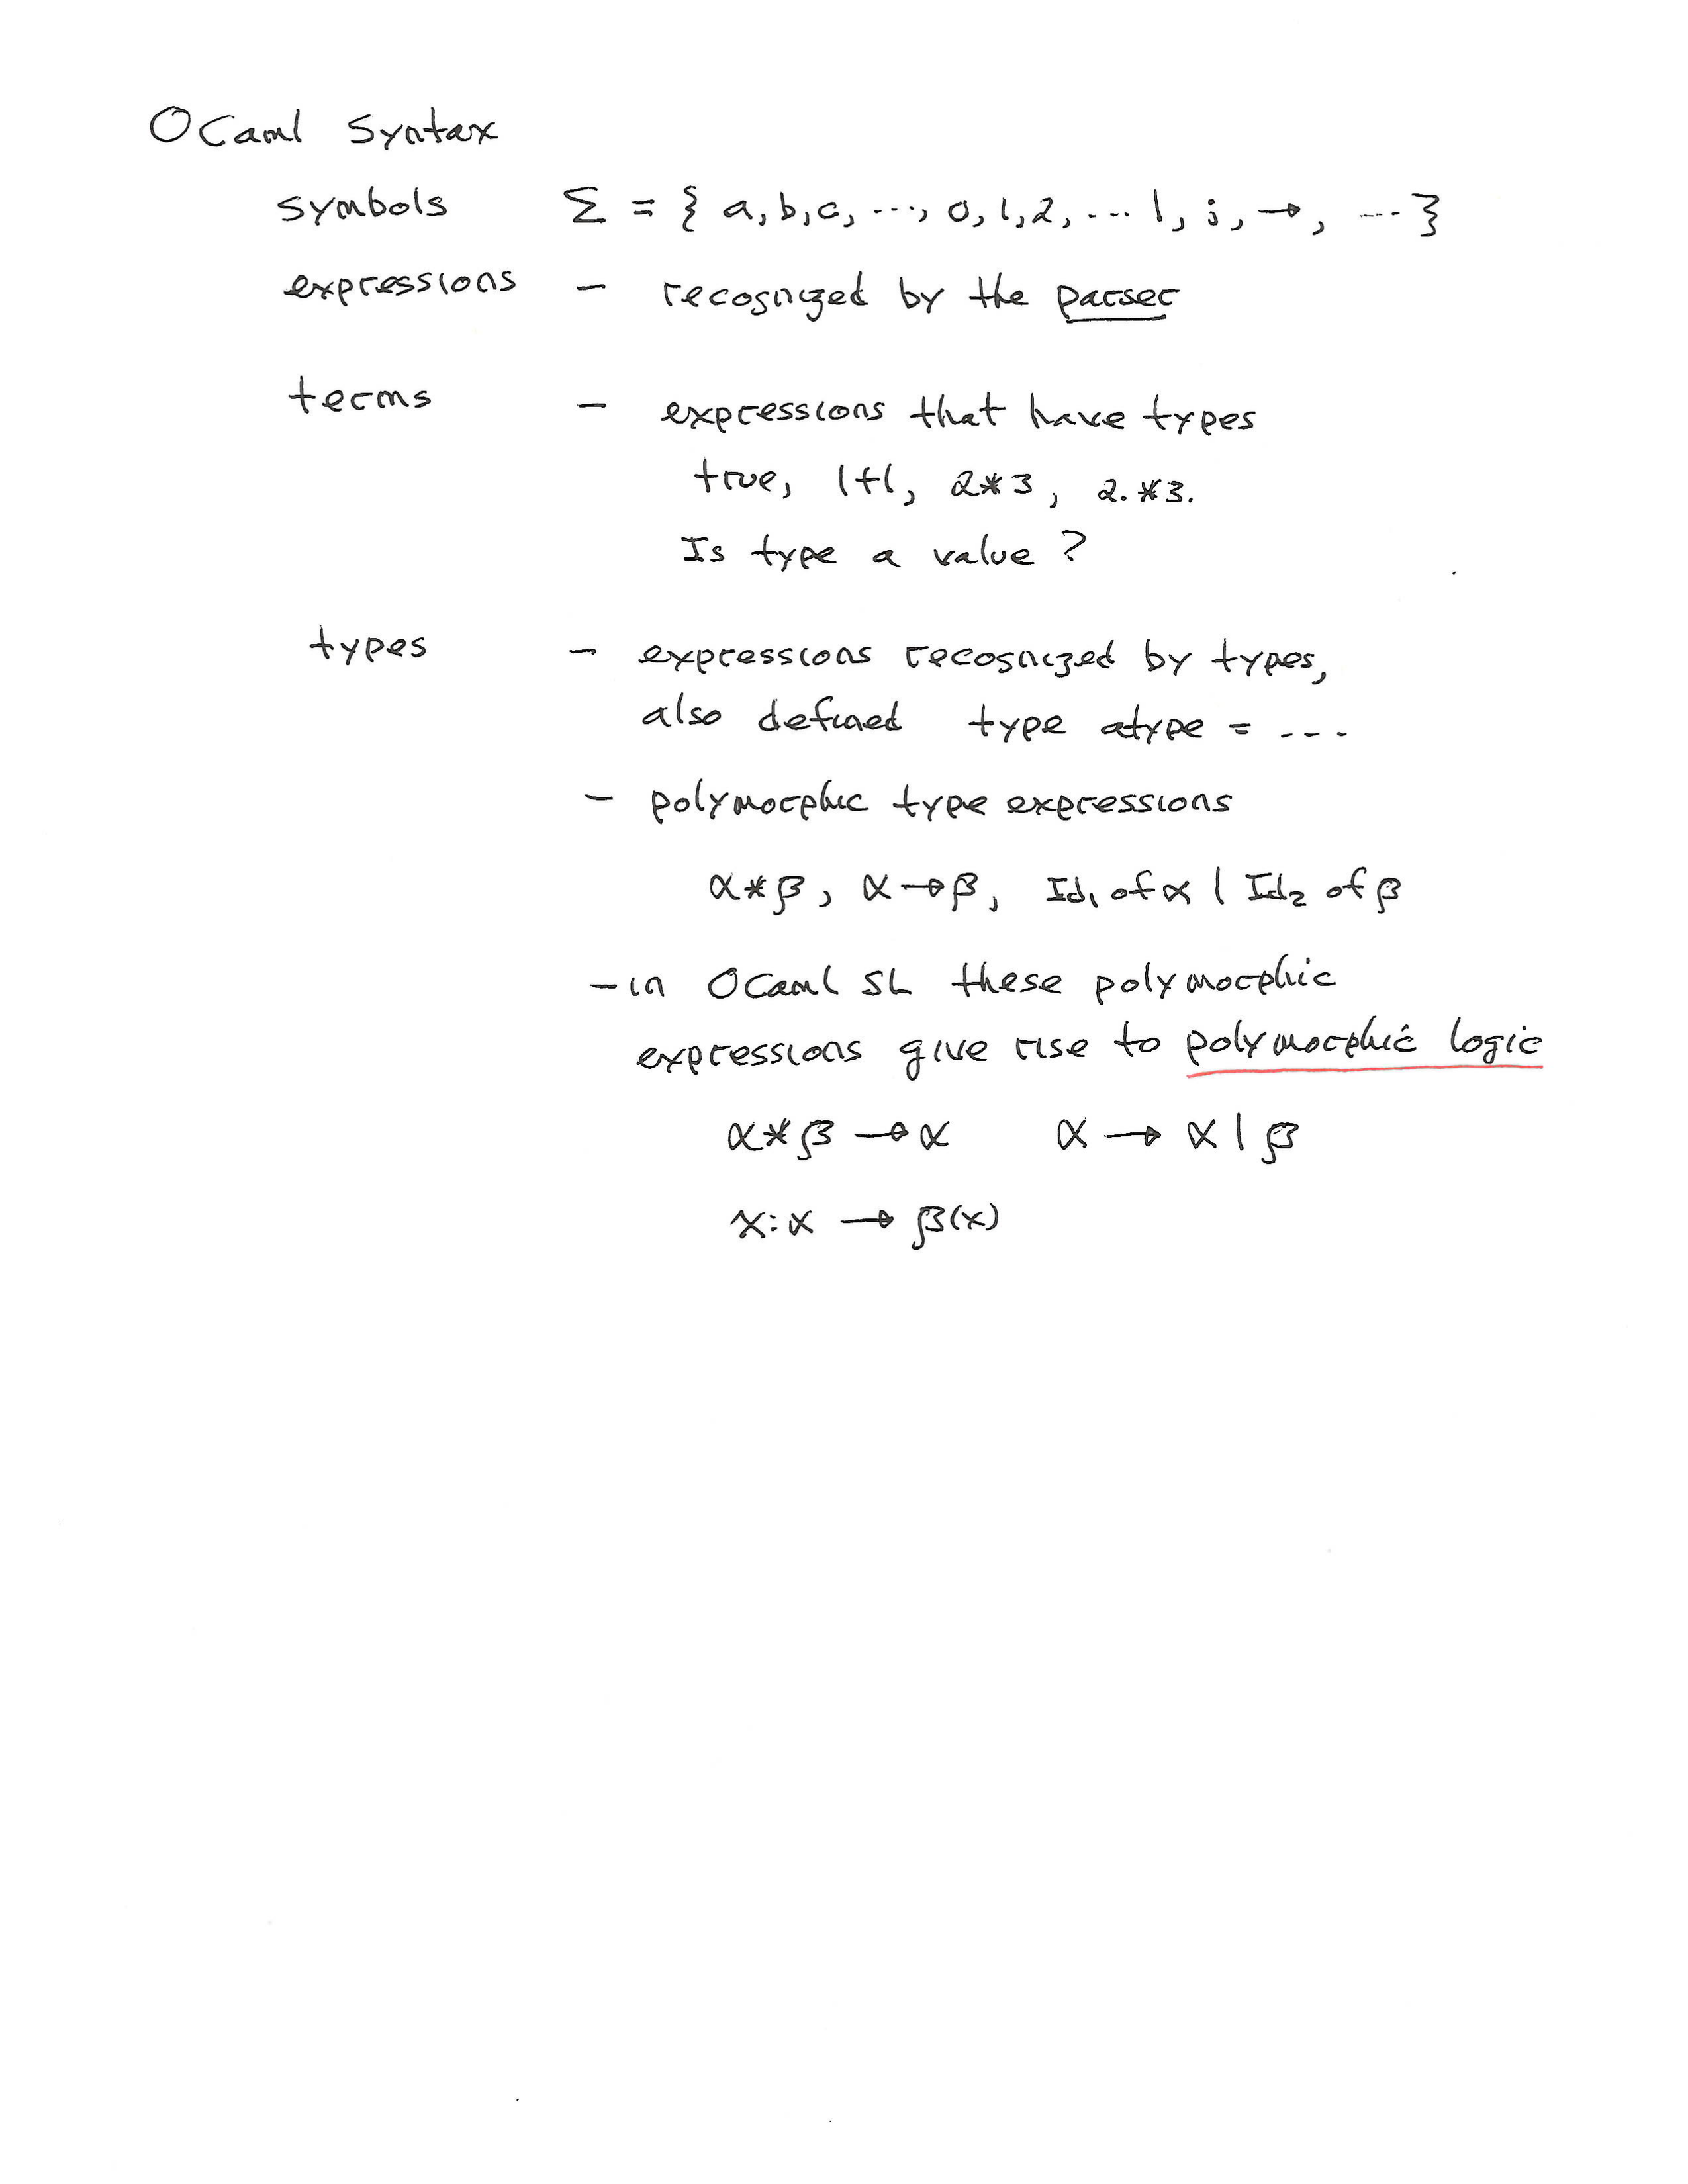 OCaml Syntax
symbols Σ = { a, b, c, ..., 0, 1, 2, ... |, ;, →, ... }
expressions – recognized by the parser
terms – expressions that have types
true, 1+1, 2*3, 2.*3.
Is type a value?
types – expressions recognized by types,
also defined type atype = ...
– polymorphic type expressions
α*β, α→β, Id₁ of α | Id₂ of β
– in OCaml SL these polymorphic
expressions give rise to polymorphic logic
α*β → α α → α | β
x:α → β(x)